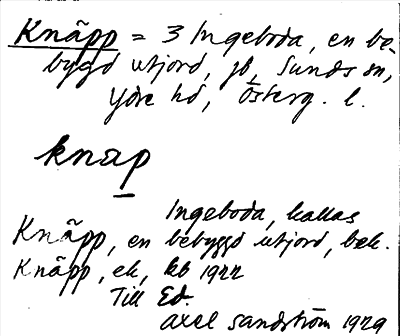 Knãpp = 3 Ingeboda, en be-
bygd utjord, jb, Sunds sn,
Ydre hd, Österg. l.
knap
Ingeboda, kallas
Knãpp, en bebyggd utjord, bek.
Knãpp, ek, kb 1922
Till Ed.
Axel Sandström 1929